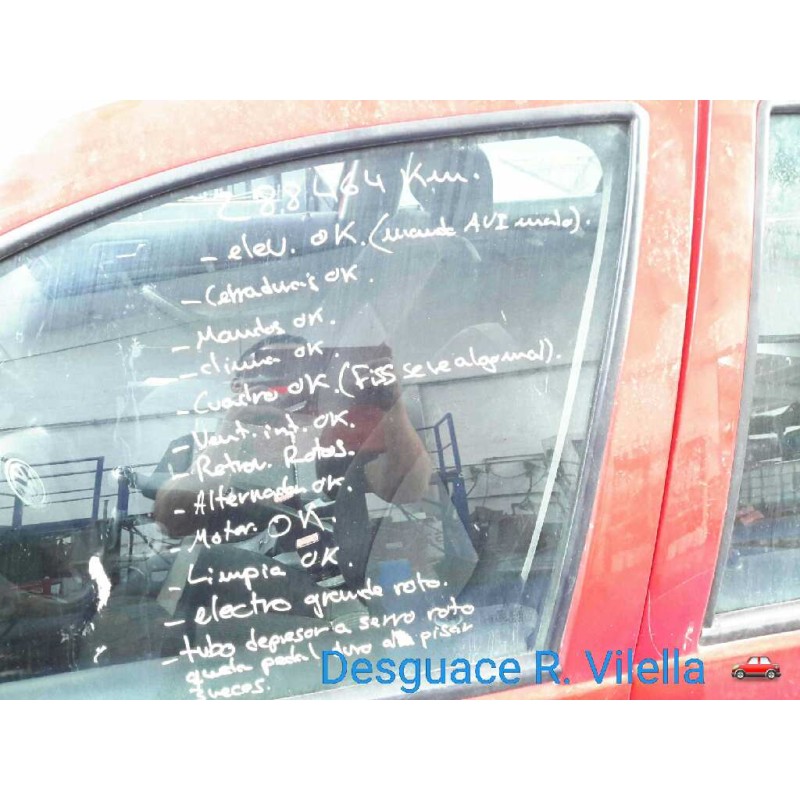 288464 Km.
- elev. OK. (mando AVI malo).
- Cerraduras OK.
- Mandos OK.
- clima OK.
- Cuadro OK. (FISS se ve algo mal).
- Vent. int. OK.
- Retrov. Rotos.
- Alternador OK.
- Motor. OK.
- Limpia OK.
- electro grande roto.
- tubo depresor a serro roto
queda pedal duro al pisar
2 veces.
Desguace R. Vilella